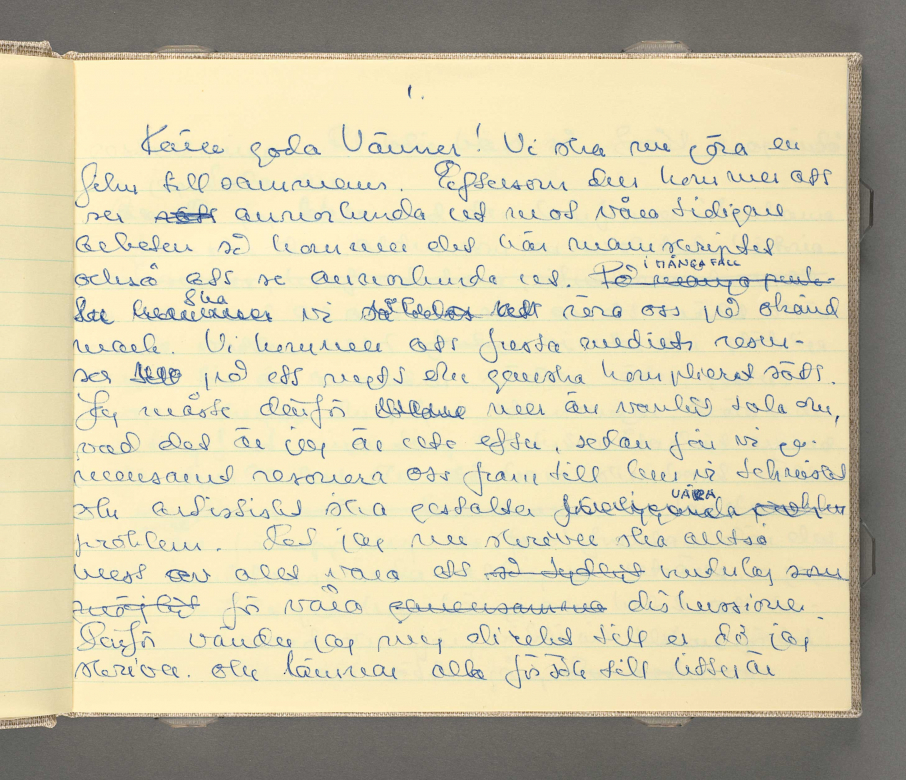 1.
Kära goda Vänner! Vi ska nu göra en
film tillsammans. Eftersom den kommer att
se annorlunda ut mot våra tidigare
arbeten så kommer det här manuskriptet
också att se annorlunda ut. På många punk-
I MÅNGA FALL
ter kommer ska vi röra oss på okänd
mark. Vi kommer att fresta mediets resur-
ser på ett nytt och ganska komplicerat sätt.
Jag måste därför mer än vanligt tala om,
vad det är jag är ute efter, sedan får vi ge-
mensamt resonera oss fram till hur vi tekniskt
och artistiskt ska gestalta föreliggande VÅRA problem
problem. Det jag nu skriver ska alltså
mest av allt vara ett så tydligt underlag som
möjligt för våra gemensamma diskussioner
Därför vänder jag mig direkt till er då jag
skriver. och lämnar alla försök till litterär